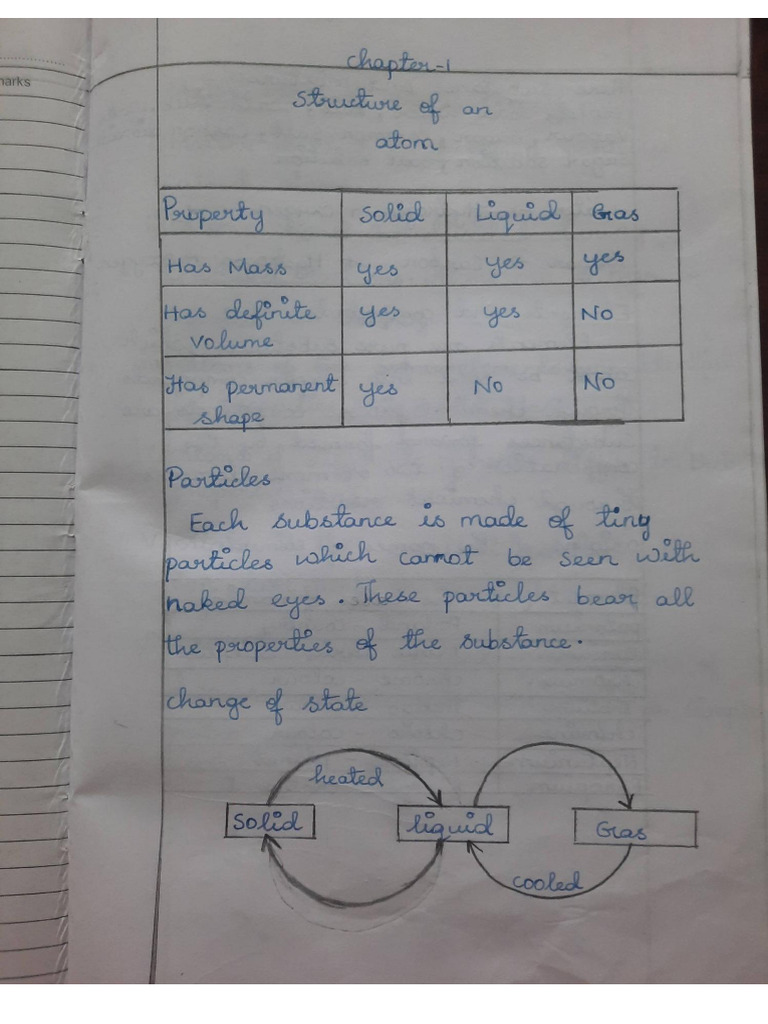 marks
Chapter-1
Structure of an
atom
Property Solid Liquid Gas
Has Mass yes yes yes
Has definite yes yes No
volume
Has permanent yes No No
shape
Particles
Each substance is made of tiny
particles which cannot be seen with
naked eyes. These particles bear all
the properties of the substance.
change of state
heated
Solid liquid Gas
cooled